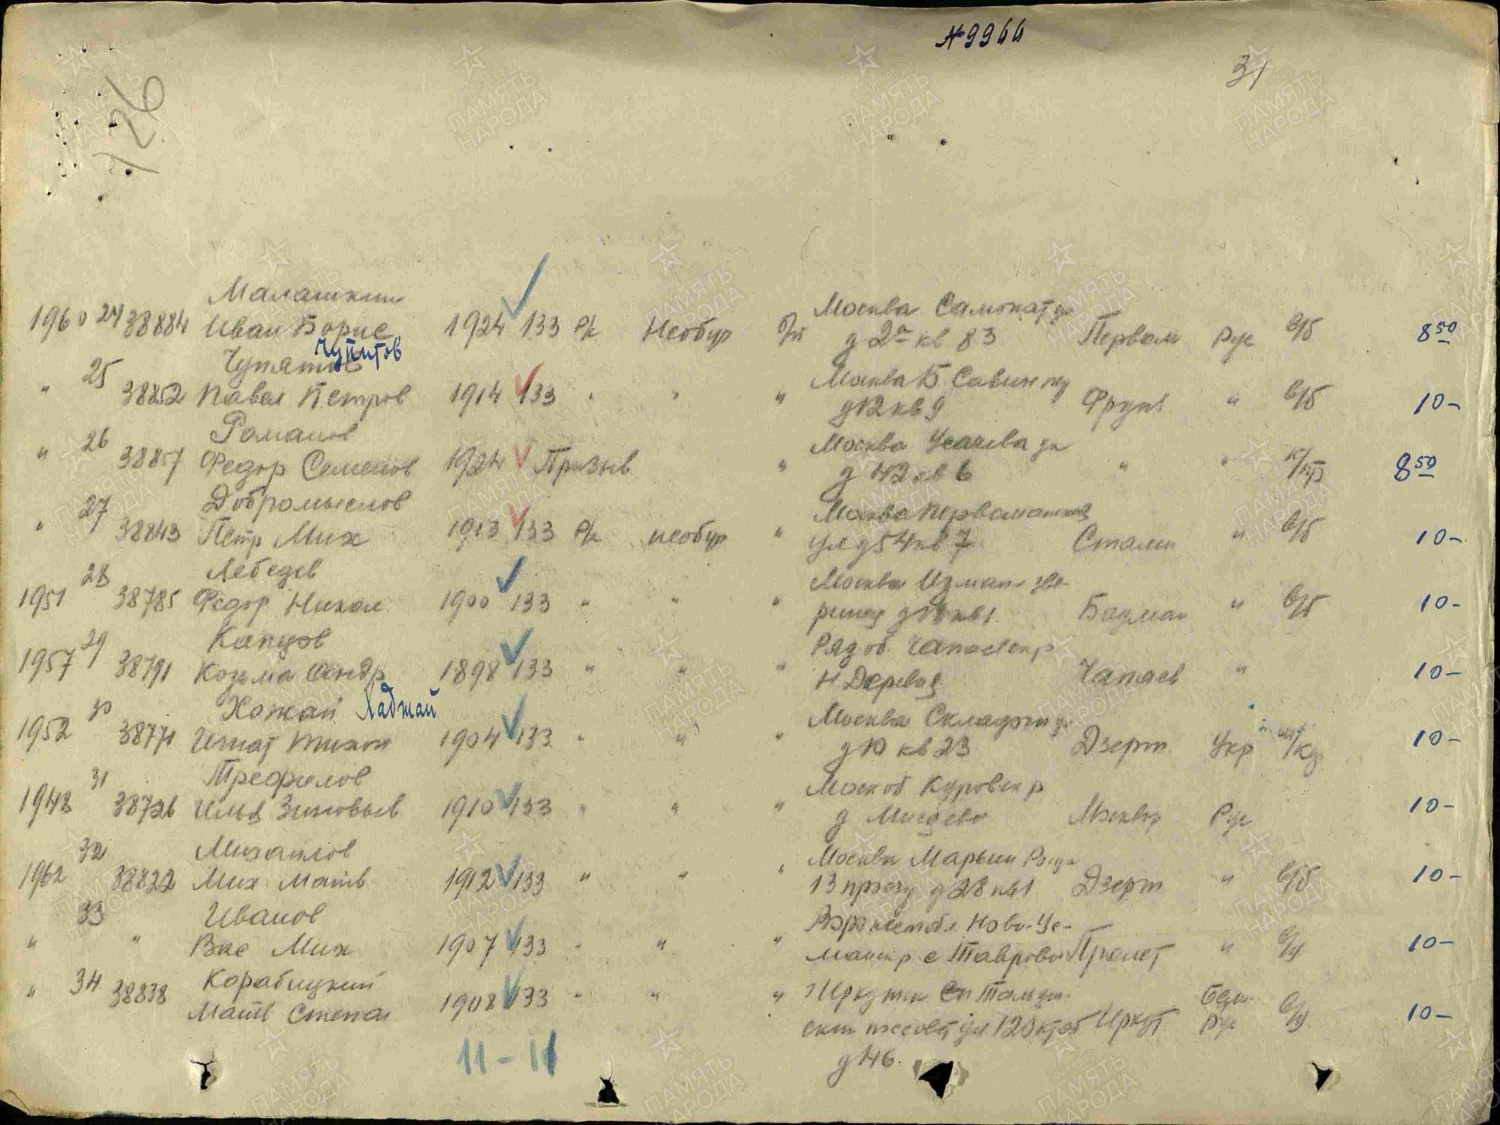 №9966
31
126
Малашкин
1960 24 38884 Иван Борис 1924 133 Р/к Необуч Москва Самокат ул д 2а кв 83 Первом Рус в/б 8 50
Чупятов Чупитов
" 25 38852 Павел Петров 1914 133 " " " Москва Б. Саввин пер д 12 кв 9 Фрунз " в/б 10-
Романов
" 26 38857 Федор Семенов 1924 Призыв " Москва Усачева ул д 42 кв 6 " " 8 50
Добромыслов
" 27 38843 Петр Мих 1913 133 Р/к необуч " Москва Первомайская ул д 54 кв 7 Сталин " в/б 10-
Лебедев
1951 28 38785 Федор Никол. 1900 133 " " " Москва Измаил зве-
ринец кв 1 Бауман " в/б 10-
Капцов
1957 29 38791 Козьма Андр 1898 133 " " " Ряз об. Чапаевск р
Н Деревня Чапаев " 10-
Хожай Хаджай
1952 30 38771 Игнат Тихон 1904 133 " " " Москва
д 10 кв 23 Дзерж Укр 10-
Трефилов
1948 31 38726 Илья Зиновьев 1910 133 " " " Моск об Куровск р
д Мисцево Рус 10-
Михайлов
1962 32 38822 Мих. Матв 1912 133 " " " Москва Марьин Роща
13 проезд д 28 кв 1 Дзерж " в/б 10-
Иванов
" 33 " Вас Мих 1907 133 " " " Воронеж обл Ново-Ус-
манск р с Таврово Пролет " 10-
Корабицкий
" 34 38838 Матв Степан 1908 133 " " " Иркутск
ул 12 Иркут Рус 10-
д 46.
11-11
ПАМЯТЬ НАРОДА